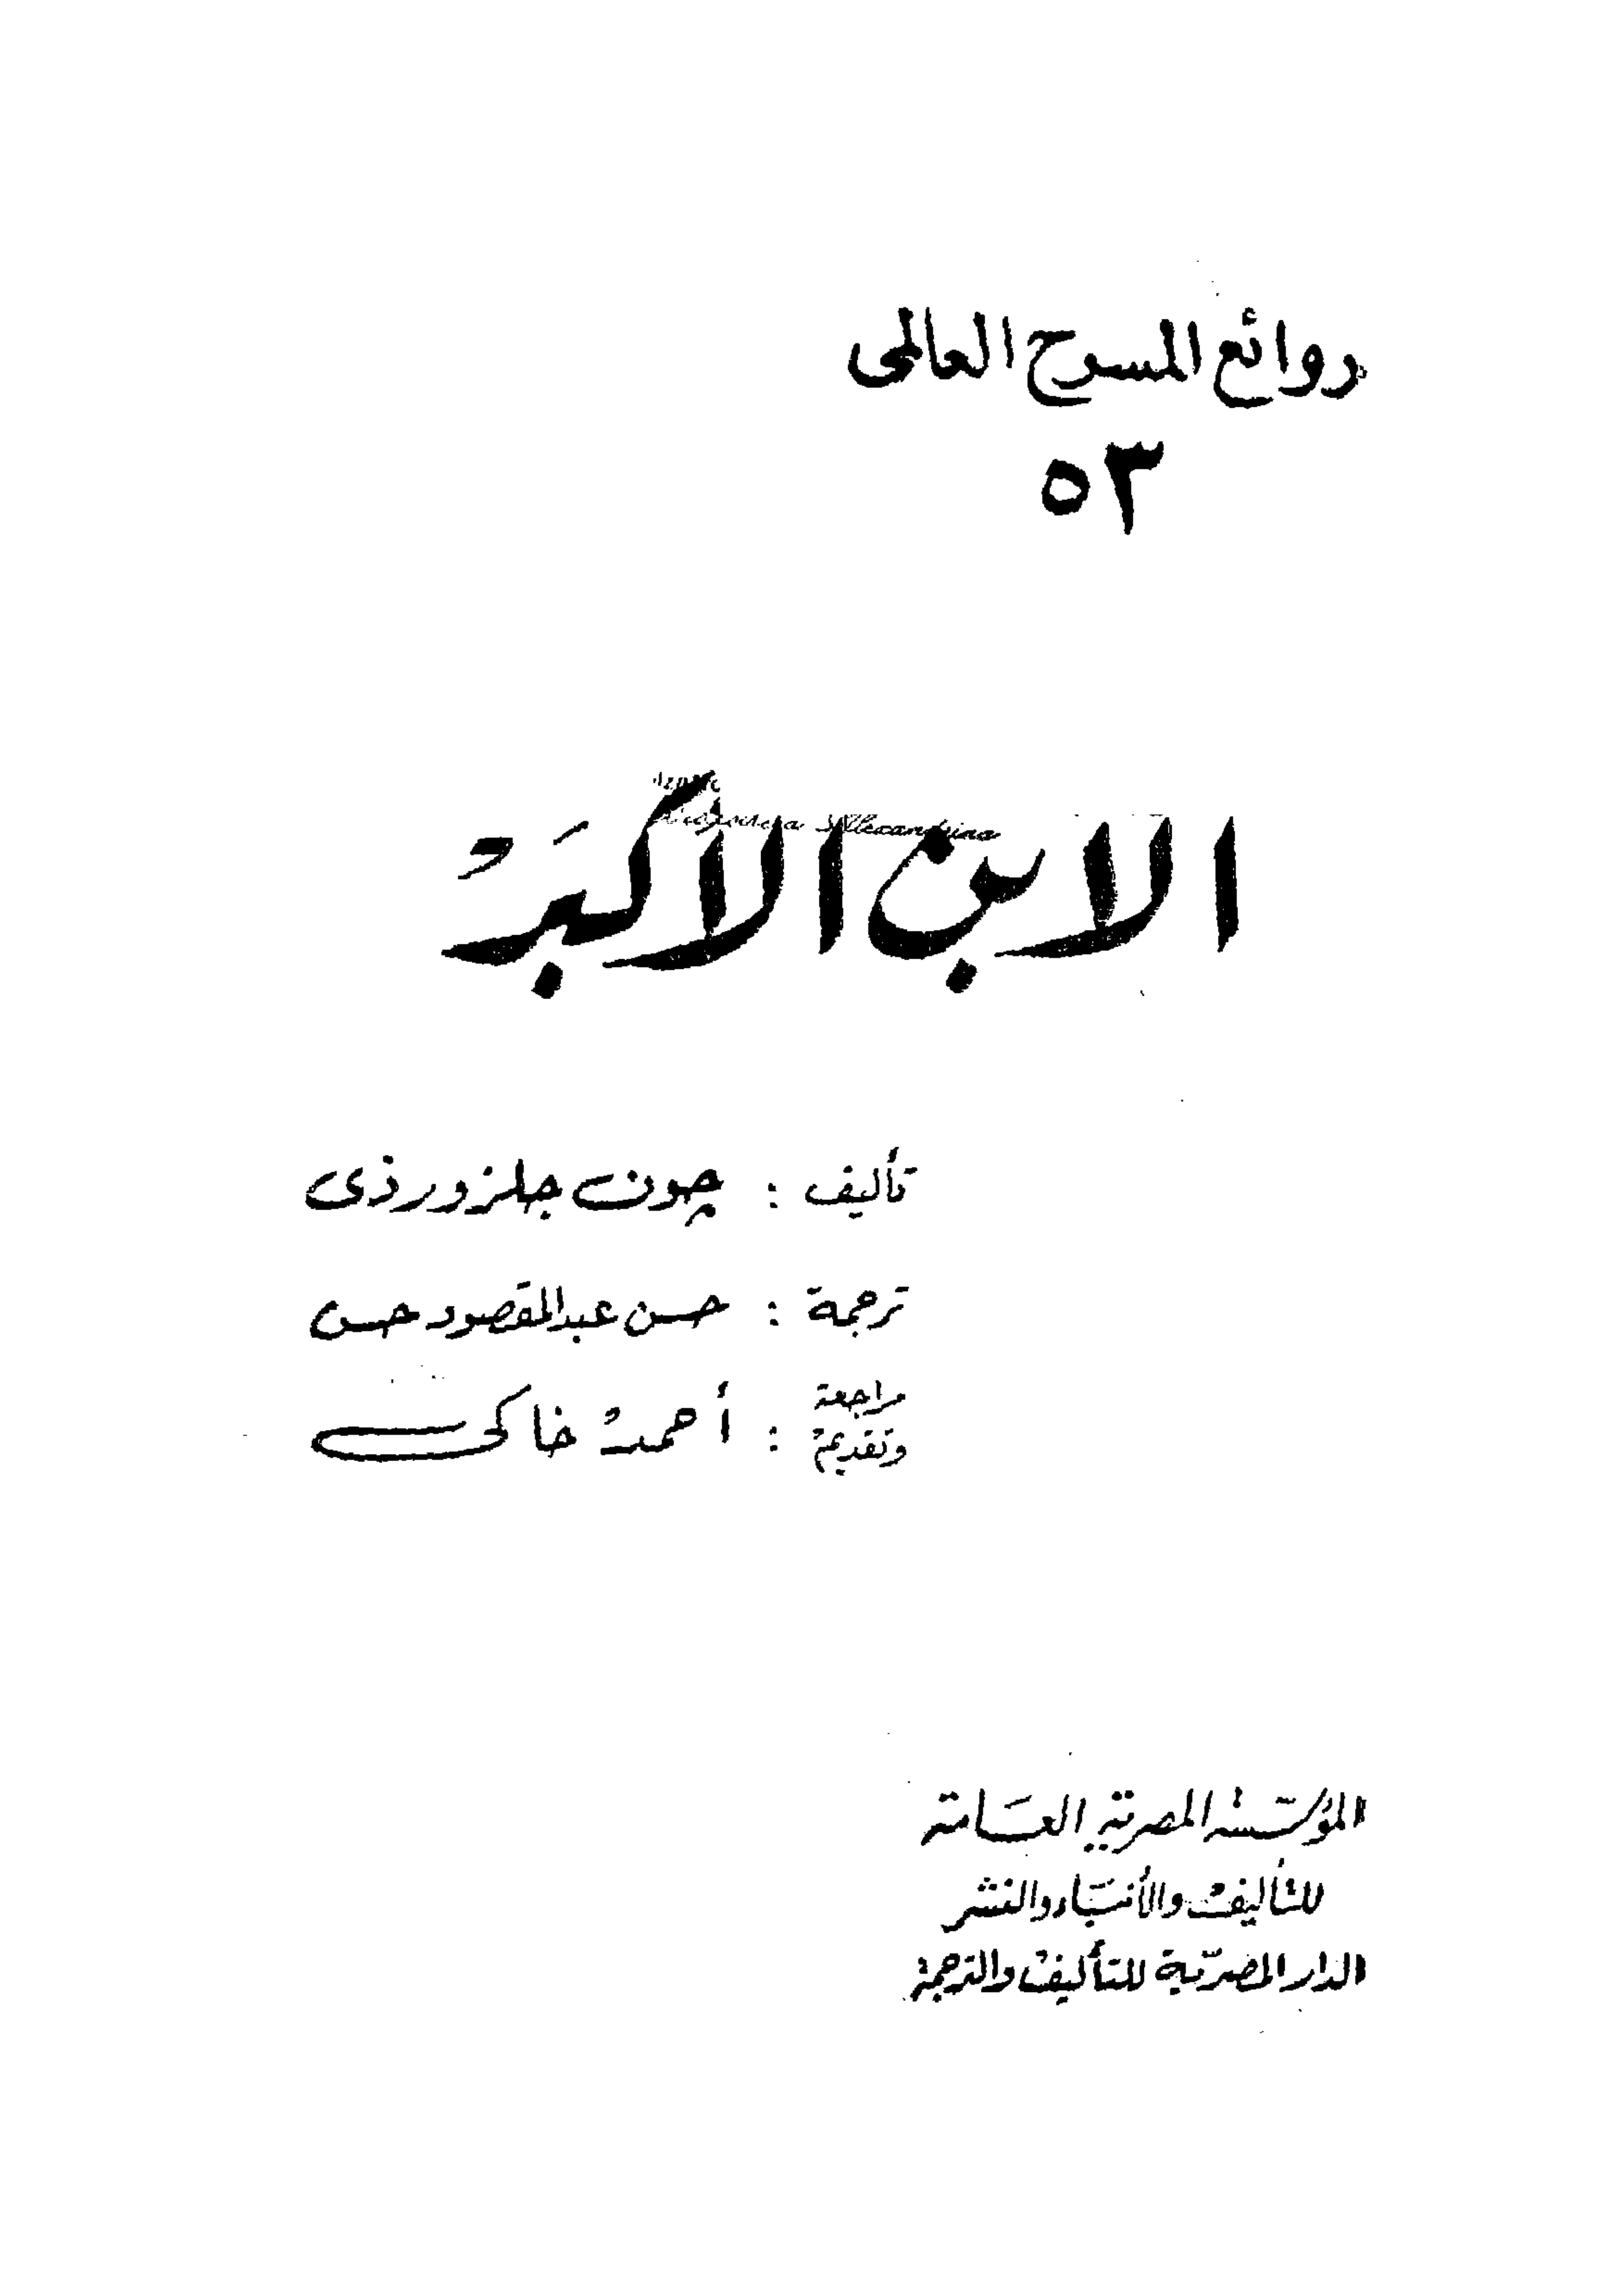 روائع المسرح العالمى
٥٣
Alexandrina
الابن الأكبر
تأليف : چون جلزورذى
ترجمة : حسن عبدالمقصود حسن
مراجعة وتقديم : أحمد خاكى
المؤسسة المصرية العامة
للتأليف والأنباء والنشر
الدار المصرية للتأليف والترجمة